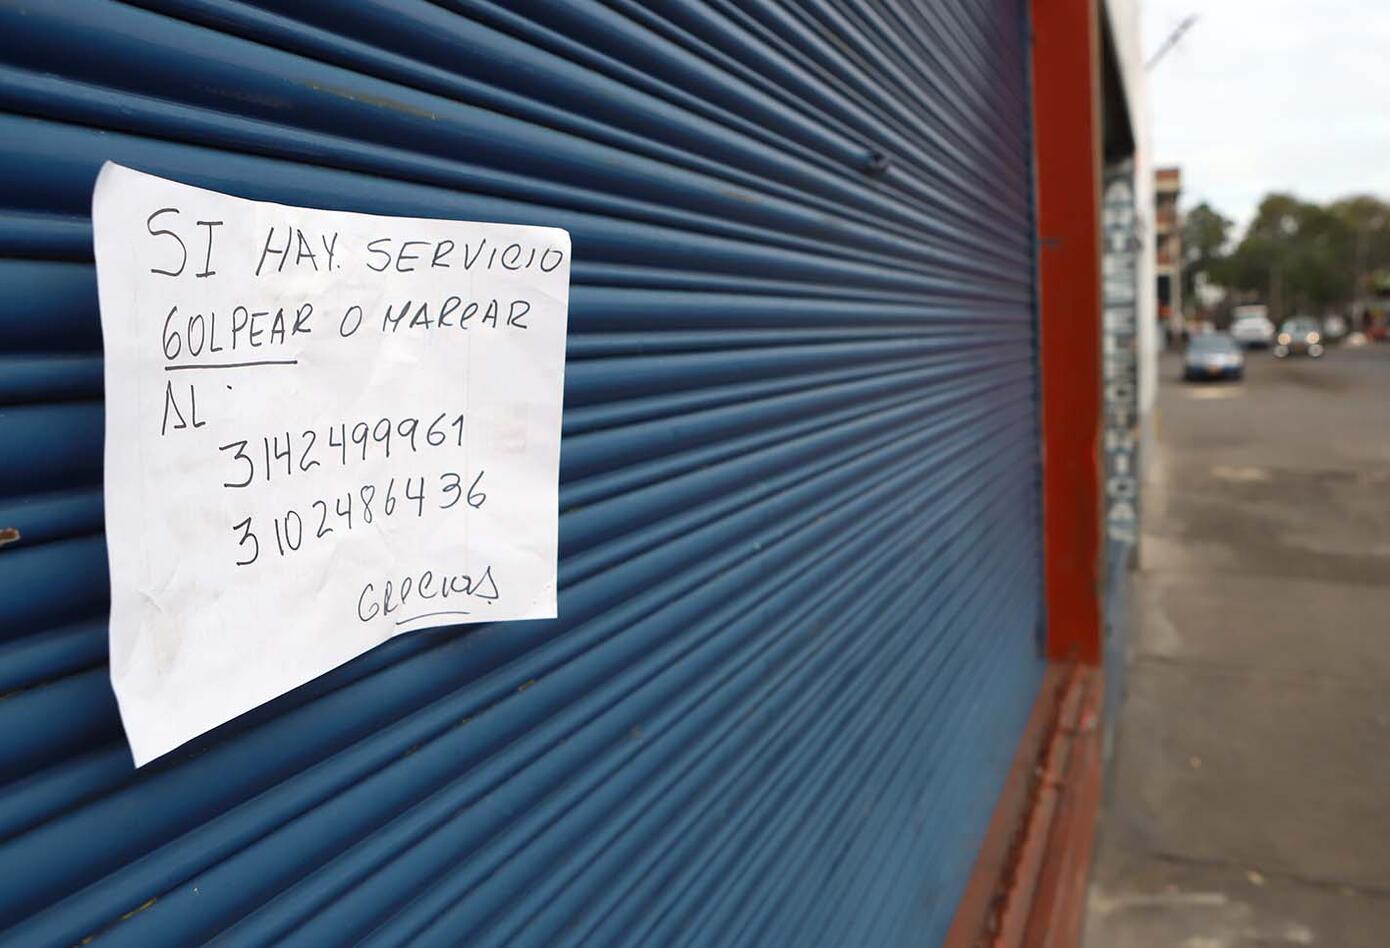 SI HAY. SERVICIO
GOLPEAR O MARCAR
AL:
3142499961
3102486436
GRACIAS